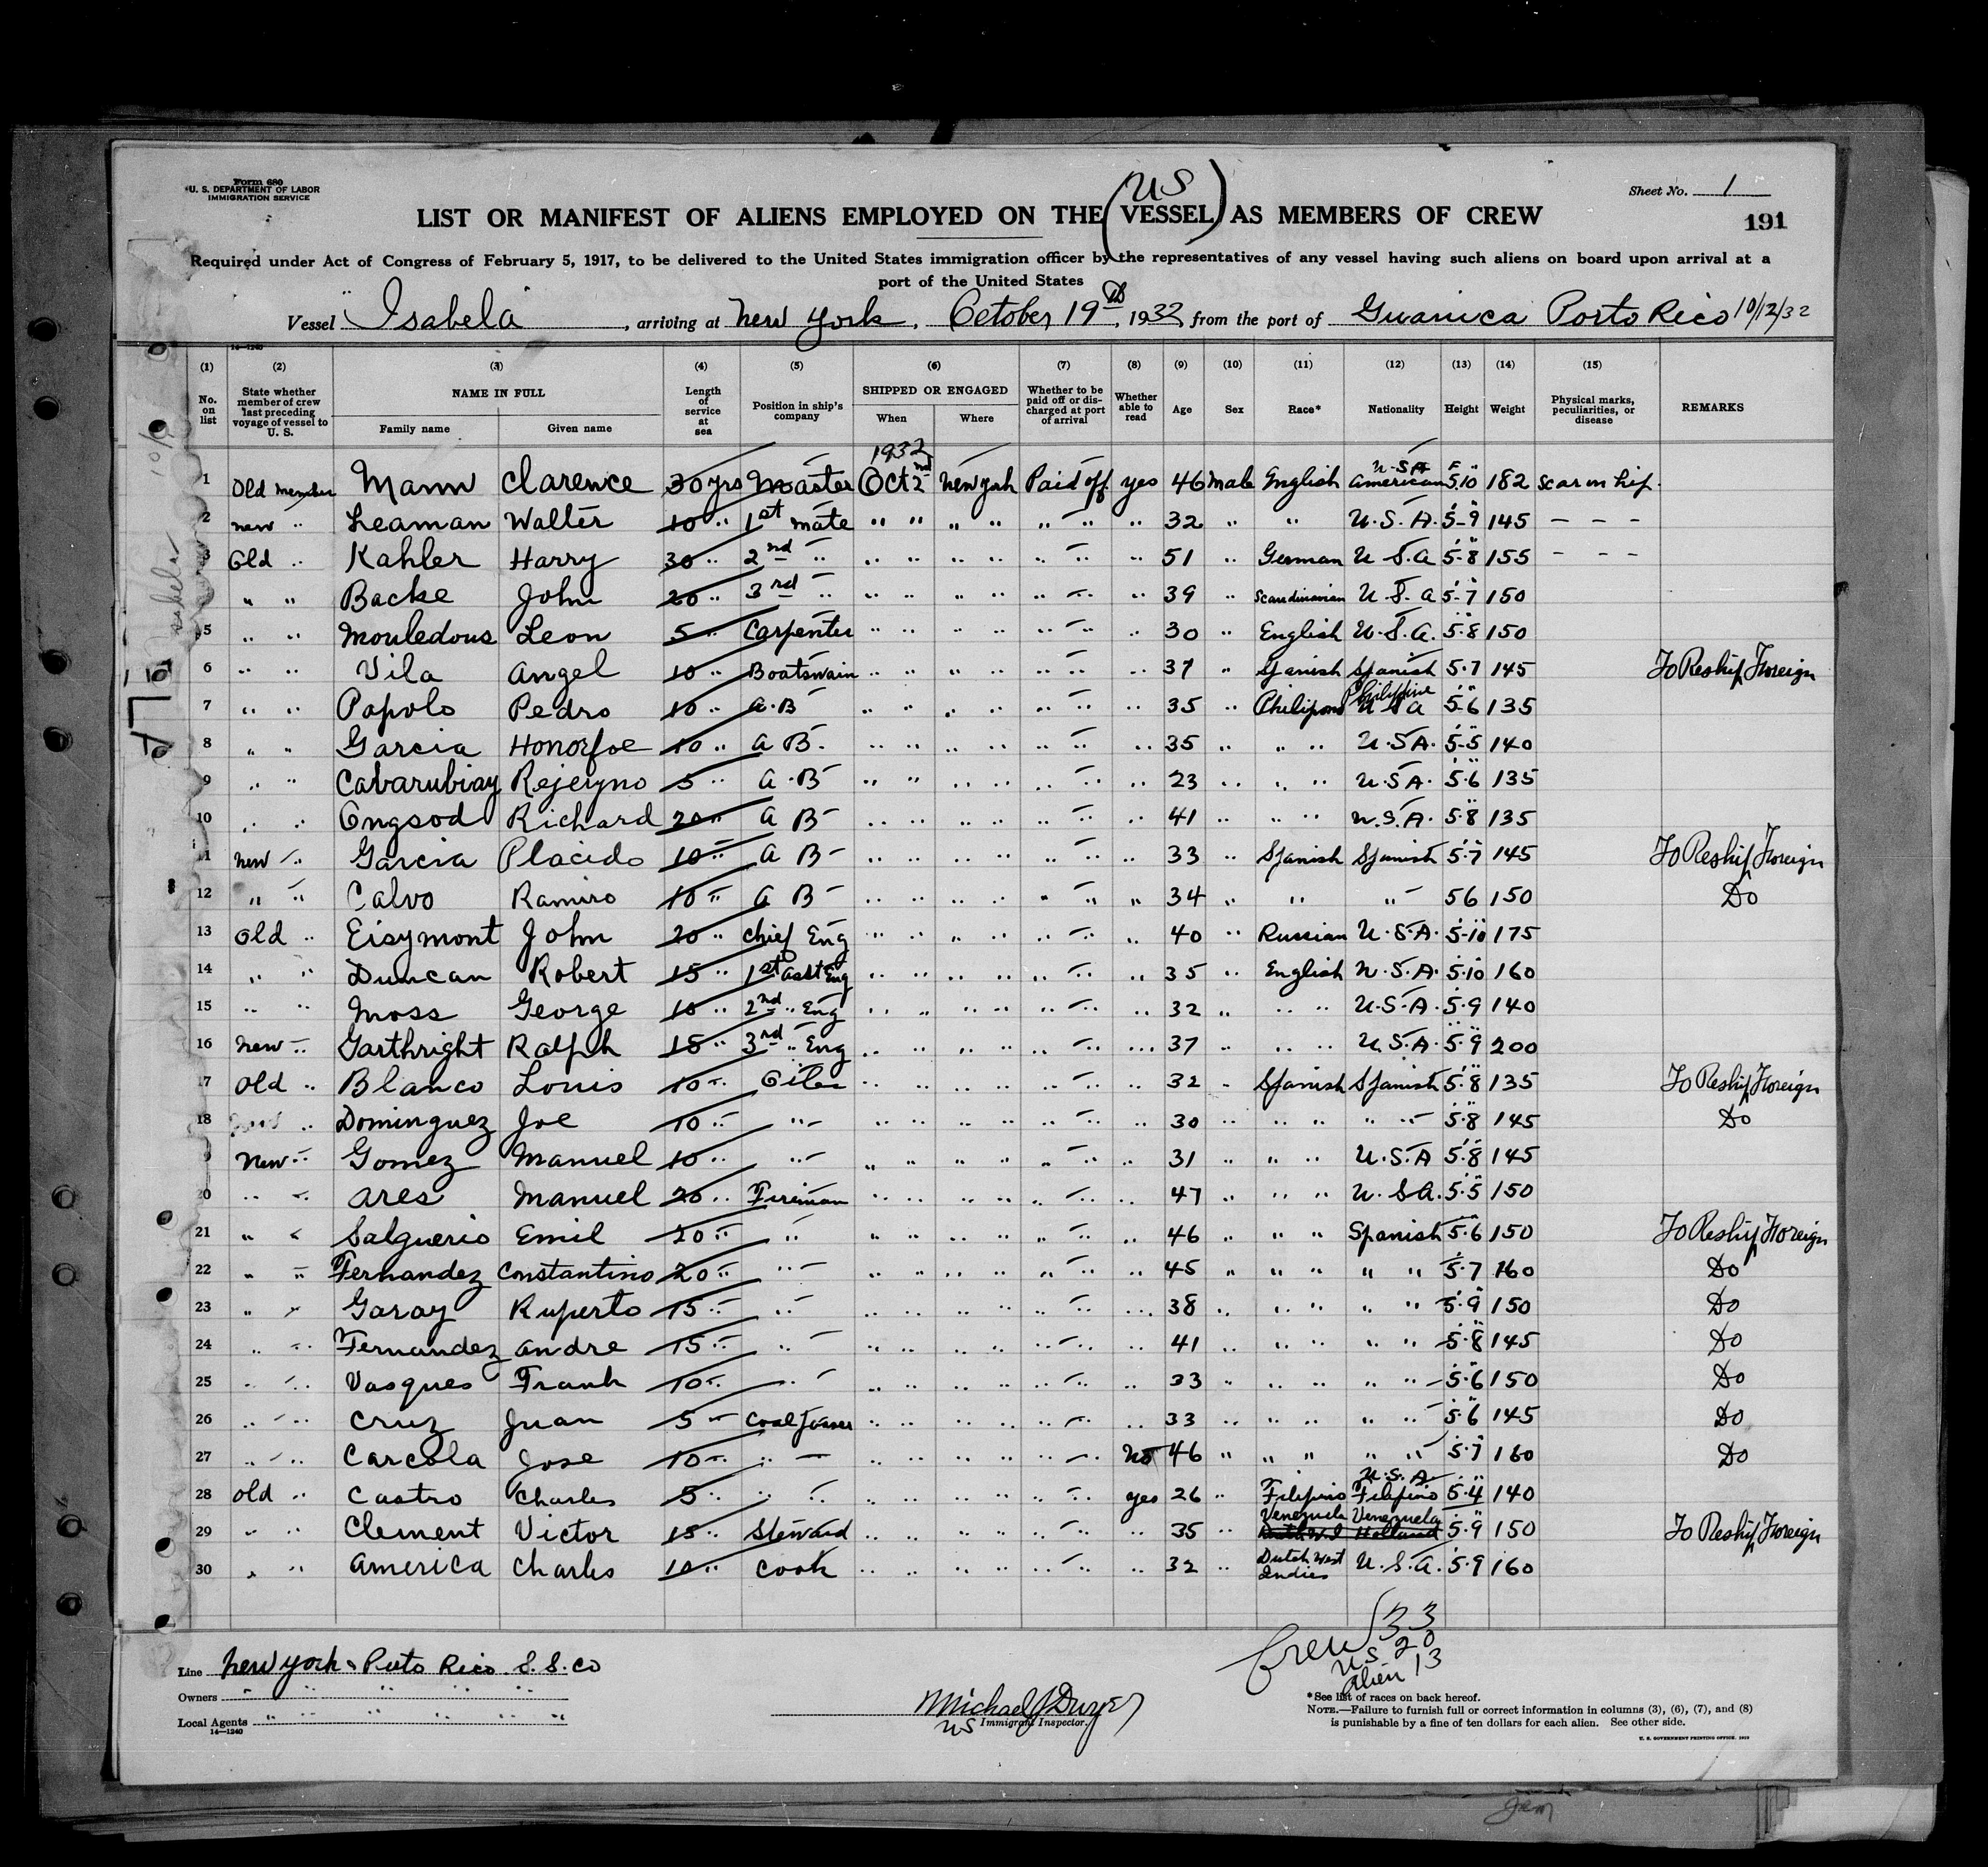 Form 680
U. S. DEPARTMENT OF LABOR
IMMIGRATION SERVICE
Sheet No. 1
191
US
LIST OR MANIFEST OF ALIENS EMPLOYED ON THE (VESSEL) AS MEMBERS OF CREW
Required under Act of Congress of February 5, 1917, to be delivered to the United States immigration officer by the representatives of any vessel having such aliens on board upon arrival at a
port of the United States
Vessel Isabela, arriving at New York, October 19th, 1932, from the port of Guanica Porto Rico 10/12/32
14—1240
(1) (2) (3) (4) (5) (6) (7) (8) (9) (10) (11) (12) (13) (14) (15)
No. on list
State whether member of crew last preceding voyage of vessel to U. S.
NAME IN FULL
Family name
Given name
Length of service at sea
Position in ship's company
SHIPPED OR ENGAGED
When
Where
Whether to be paid off or discharged at port of arrival
Whether able to read
Age
Sex
Race*
Nationality
Height
Weight
Physical marks, peculiarities, or disease
REMARKS
1932
1 Old member Mann Clarence 30 yrs Master Oct 2nd New York Paid off yes 46 Male English U.S.A. American 5.10 182 scar on hip.
2 new " Leaman Walter 10 " 1st mate " " " " " " " 32 " " U.S.A. 5-9 145 - - -
3 Old " Kahler Harry 30 " 2nd " " " " " " " " 51 " German U.S.A 5-8 155 - - -
4 " " Backe John 20 " 3rd " " " " " " " " 39 " Scandinavian U.S.A 5-7 150
5 " " Mouledous Leon 5 " Carpenter " " " " " " " 30 " English U.S.A. 5.8 150
6 " " Vila Angel 10 " Boatswain " " " " " " " 37 " Spanish Spanish 5.7 145 To Reship Foreign
7 " " Popolo Pedro 10 " A.B " " " " " " " 35 " Philipino Philippine USA 5-6 135
8 " " Garcia Honorfoe 10 " A B. " " " " " " " 35 " " " U.S.A. 5-5 140
9 " " Cabarubiay Rejeryno 5 " A.B " " " " " " 23 " " " U.S.A. 5.6 135
10 " " Ongsod Richard 20 " A B " " " " " " " 41 " " " U.S.A. 5.8 135
11 new " Garcia Placido 10 " A B " " " " " " " 33 " Spanish Spanish 5.7 145 To Reship Foreign
12 " " Calvo Ramiro 10 " A B " " " " " " " 34 " " " 56 150 Do
13 Old " Eisymont John 20 " Chief Eng " " " " " " " 40 " Russian U.S.A. 5-10 175
14 " " Duncan Robert 15 " 1st Asst Eng " " " " " " " 35 " English U.S.A. 5.10 160
15 " " Moss George 10 " 2nd " Eng " " " " " " " 32 " " " U.S.A. 5.9 140
16 new " Garthright Ralph 18 " 3rd " Eng " " " " " " " 37 " " " U.S.A. 5.9 200
17 Old " Blanco Louis 10 " Oiler " " " " " " " 32 " Spanish Spanish 5.8 135 To Reship Foreign
18 " Dominguez Joe 10 " " " " " " " " " 30 " " " " " 5.8 145 Do
9 New " Gomez Manuel 10 " " " " " " " " " 31 " " " U.S.A 5.8 145
20 " " Ares Manuel 20 " Fireman " " " " " " " 47 " " " U.S.A. 5.5 150
21 " " Salguerio Emil 20 " " " " " " " " " 46 " " " Spanish 5.6 150 To Reship Foreign
22 " " Fernandez Constantino 20 " " " " " " " " " 45 " " " " " 5.7 160 Do
23 " " Garay Ruperto 15 " " " " " " " " " 38 " " " " " 5.9 150 Do
24 " " Fernandez Andre 15 " " " " " " " " " 41 " " " " " 5.8 145 Do
25 " " Vasques Frank 10 " " " " " " " " " 33 " " " " " 5.6 150 Do
26 " " Cruz Juan 5 " Coal Passer " " " " " " " 33 " " " " " 5.6 145 Do
27 " " Carcola Jose 10 " " " " " " " " No 46 " " " " " 5.7 160 Do
28 Old " Castro Charles 5 " " " " " " " " yes 26 " Filipino U.S.A. Filipino 5.4 140
29 " " Clement Victor 15 " Steward " " " " " " " 35 " Venezuela Venezuela Holland 5.9 150 To Reship Foreign
30 " " America Charles 10 " Cook " " " " " " 32 " Dutch West Indies U.S.A. 5.9 160
Crew 33
US 20
Alien 13
Line New York & Puto Rico S.S. Co
Owners " " " " " "
Local Agents " " " " " "
14—1240
Michael J Dwyer
US Immigrant Inspector.
*See list of races on back hereof.
NOTE.—Failure to furnish full or correct information in columns (3), (6), (7), and (8)
is punishable by a fine of ten dollars for each alien. See other side.
U. S. GOVERNMENT PRINTING OFFICE: 1929